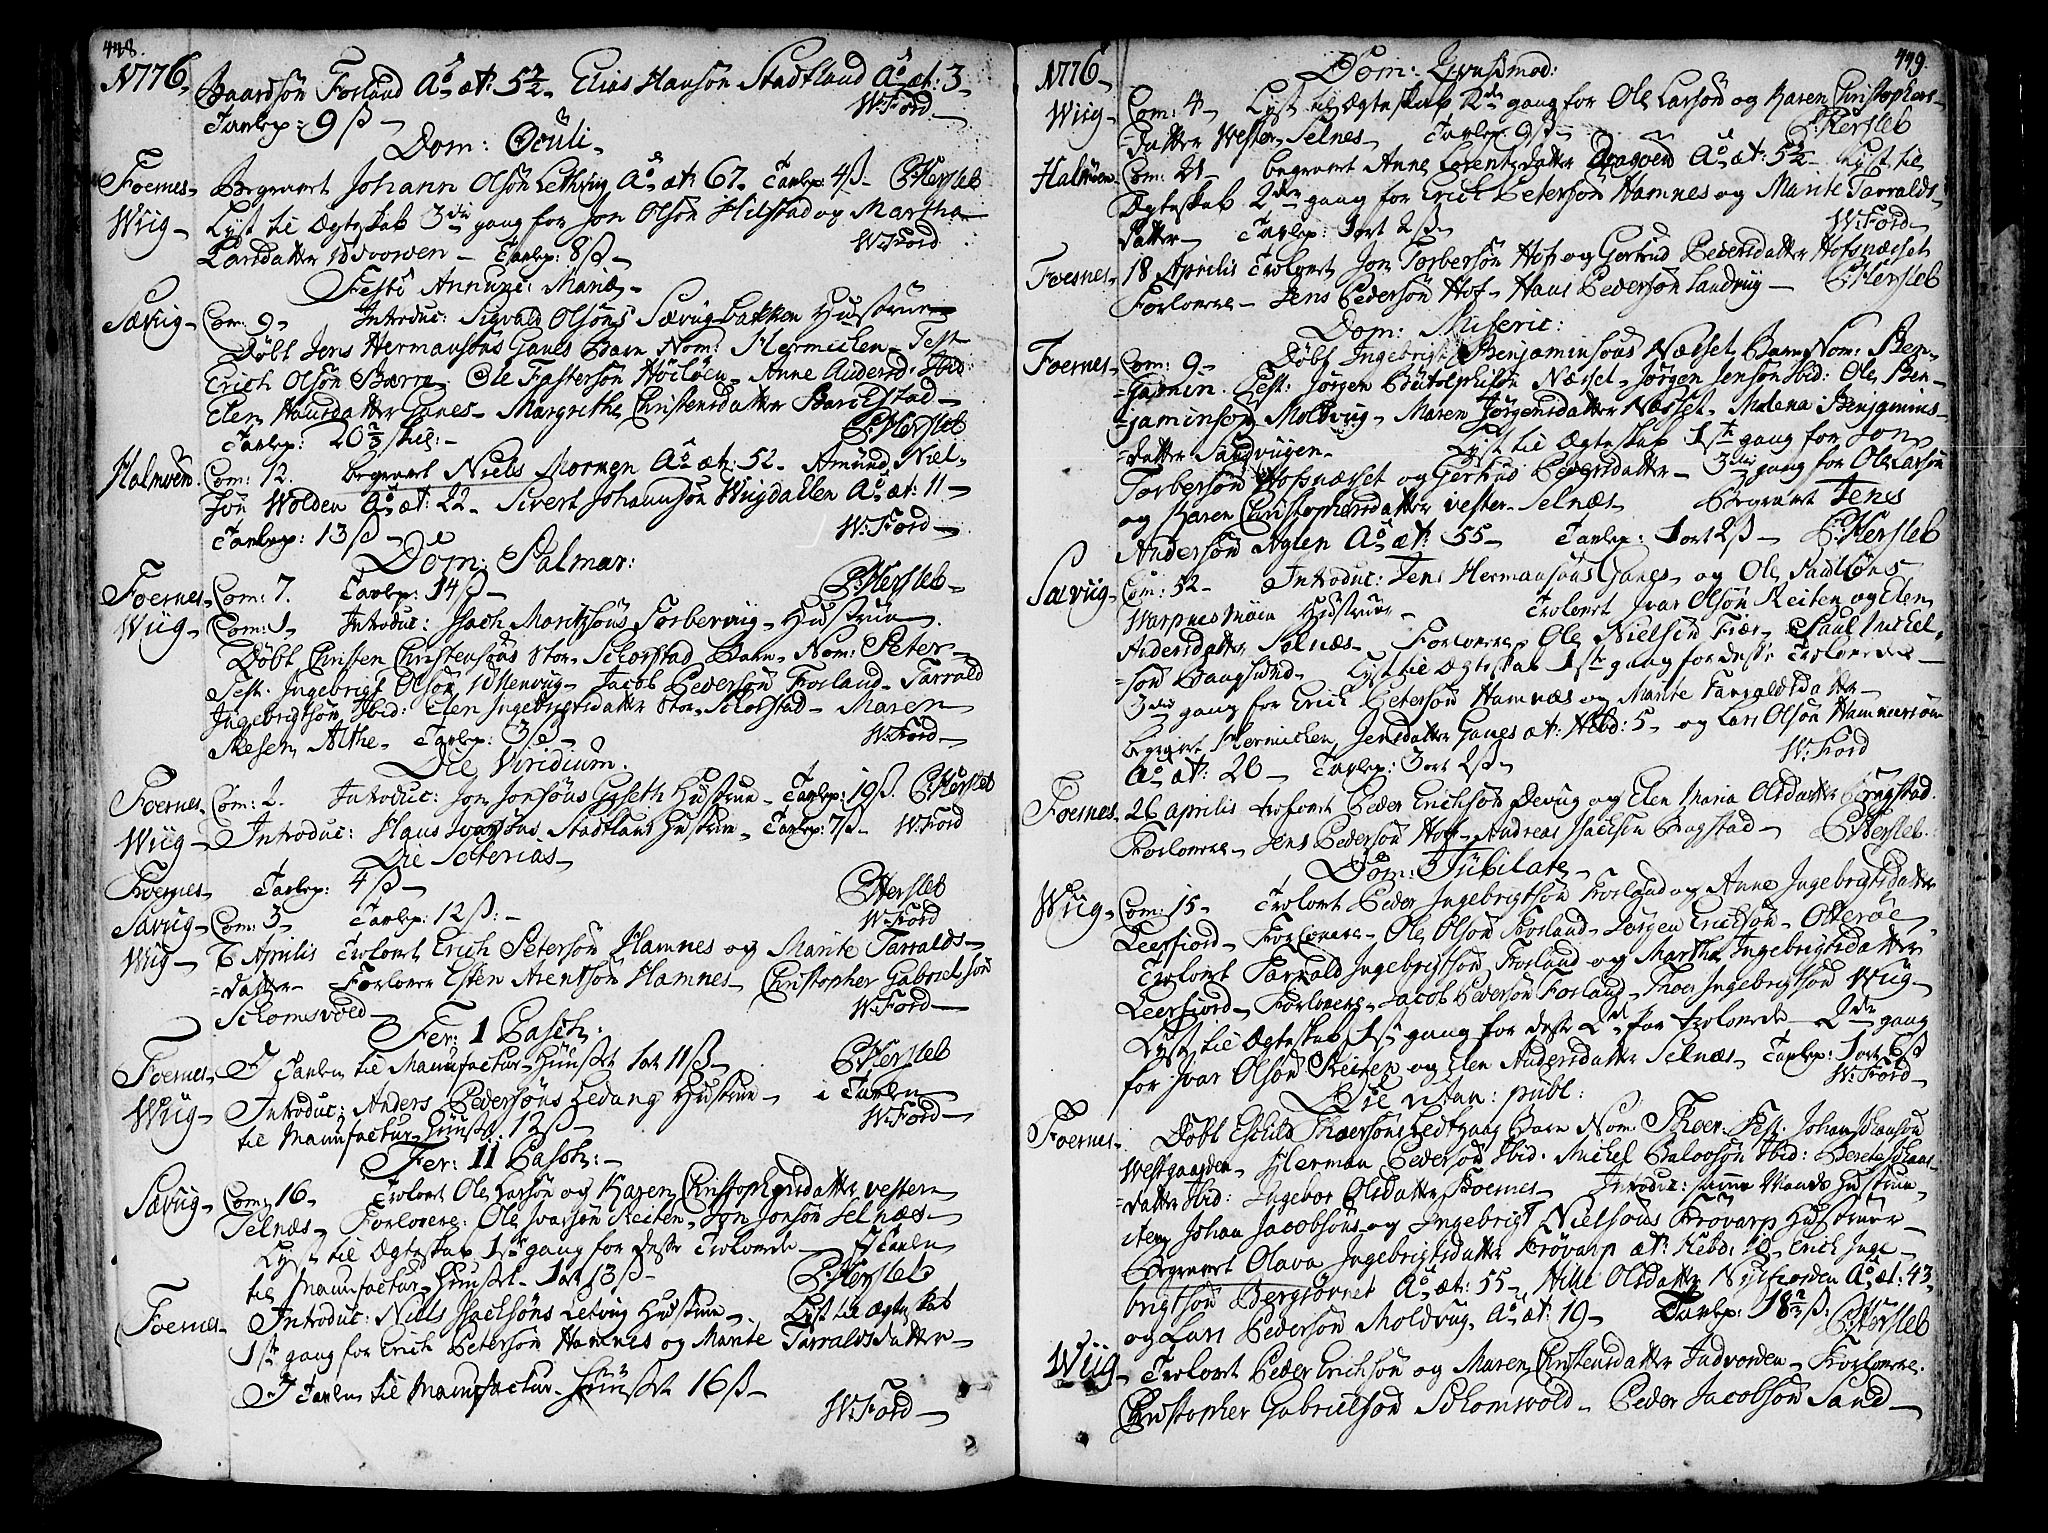 448.
1776. Baardsön Forland Ao æt: 5 1/2 Elias Hansön Stadtland Ao æt: 3-
Tavlep: 9 ß - W. Ford -
Dom: Oculi -
Foernes - Begravet Johann Olsön Lethvug Ao æt: 67. Tavlep: 4 ß - P: Hersleb
Wiig - Lyst til Ægteskab 3die gang for Jon Olsön Hilstad og Martha
Larsdatter Tavlep: 8 ß - W. Ford
Festo Annunc: Mariæ -
Sæviig - Com: 9 - Introduc: Sigvald Olsöns Sævigbakken Hustrue
Döbt Jens Hermansöns Ganes Barn Nom: Hermichen - Test
Erich Olsön Ole Fastersön Höiloen - Anne Andersd: Ibid:
Elen Hansdatter Ganes - Margrethe Christensdatter
Tavlep: 20 2/3 skil: - P: Hersleb
Halmöen. Com: 12. begravet Niels Mornen Ao æt: 52 - Amund Niel-
sön Wolden Ao æt: 22 - Sivert Johannsön Wiigdallen Ao æt: 11 -
Tavlep: 13 ß - W. Ford -
Dom: Palmar:
Foernes - Com: 7. Tavlep: 14 ß - P: Hersleb -
Wiig - Com: 1 - Introduc: Isach Moritzöns Torberviig - Hustrue
Döbt Christen Christensöns Stor-Schorstad Barn - Nom: Peter -
Test. Ingebrigt Olsön Jacob Pedersön Forland - Tarrald
Ingebrigtsön Ibid: Elen Ingebrigtsdatter Stor-Schorstad - Maren
Althe - Tavlep: 3 ß - W. Ford -
Die Viridium.
Foernes. Com: 2. Introduc: Jon Jonsöns Hustrue - Tavlep: 19 ß. P: Hersleb
Wiig - Introduc: Hans Ivarsöns Stadtland Hustrue - Tavlep: 7 ß - W. Ford
Die
Foernes - Tavlep: 4 ß - P: Hersleb
Sævug - Com: 3 - Tavlep: 12 ß: - W. Ford
Wiig - 6 Aprilis Trolovet Erich Petersön Hamnes og Marite Tarralds-
=datter - Forlover Esten Arentsön Hamnes - Christopher Gabrielsön
Schomsvold - W. Ford -
Fer: 1 Pasch:
Foernes - I Tavlen til Manufactur-Huuset 1 ort 11 ß - P: Hersleb
Wiig - Introduc: Anders Pedersöns Ledang Hustrue - i Tavlen
til Manufactur-Huuset. 12 ß - W. Ford -
Fer: 11 Pasch: -
Sævug - Com: 16 - Trolovet Ole Larsön og Karen Christophersdatter vester
Selnæs - Forlovere: Ole Ivarsön Reiten - Jon Jonsön Selnæs -
Lyst til Ægteskab 1ste gang for desse Trolovede - I Tavlen
til Manufactur-Huuset - 1 ort 13 ß - P: Hersleb
Foernes - Introduc: Niels Isachsöns Letvug Hustrue - Lyst til Ægteskab
1ste gang for Erich Petersön Hamnes og Marite Tarraldsdatter -
I Tavlen til Manufactur-Huuset 16 ß -
W. Ford -
449.
1776 - Dom: Qvasimod:
Wiig - Com: 4 - Lyst til Ægteskab 2de gang for Ole Larsön og Karen Christophers-
datter Wester-Selnes - Tavlep: 9 ß - P: Hersleb
Halmöen - Com: 21 - begravet Anne Lorentzdatter Ao æt: 5 1/2 - Lyst til
Ægteskab 2den gang for Erich Petersön Hamnes og Marite Tarralds-
datter - Tavlep: 1 ort 2 ß - W. Ford -
Foernes - 18 Aprilis Trolovet Jon Torbersön Hof og Gertrud Pedersdatter Hofsnæsset
Forlovere - Jens Pedersön Hof - Hans Pedersön Landviig - P: Hersleb
Dom: Miseric:
Foernes - Com: 9 - Döbt Ingebrigt Benjaminsöns Næsset Barn Nom: Ben-
=jamin. Test: Jörgen Næsset - Jörgen Jensön Ibid: Ole Ben-
=jaminsön Moldvug - Maren Jörgensdatter Næsset - Malena Benjamins-
=datter Sandviigen - Lyst til Ægteskab 1ste gang for Jon
Torbersön Hofsnæsset og Gertrud Pedersdatter - 3die gang for Ole Larsön
og Karen Christophersdatter vester-Selnæs - Begravet Jens
Andersön Aglen Ao æt: 55 - Tavlep: 1 ort 2 ß - P: Hersleb
Sævug - Com: 52 - Introduc: Jens Hermansöns Ganes - og Ole Paulsöns
Warpnesmöen Hustruer - Trolovet Ivar Olsön Reiten og Elen
Andersdatter Selnæs - Forlovere Ole Nielsön Fiær - Paul Michel-
=sön Baagsund - Lyst til Ægteskab 1ste gang for desse Trolovede -
3die gang for Erich Petersön Hamnæs og Marite Tarraldsdatter -
begravet Hermichen Jensdatter Ganes æt: Hebd: 5 - og Lars Olsön
Ao æt: 20 - Tavlep: 3 ort 2 ß - W. Ford
Foernes - 26 Aprilis trolovet Peder Erichsön Devug og Elen Maria Olsdatter
Forlovere - Jens Pedersön Hof - Andreas Isachsön Bragstad - P: Hersleb:
Dom: Jubilate -
Wiig - Com: 15 - Trolovet Peder Ingebrigtsön Forland og Anne Ingebrigtsdatter
Leerfiord - Forlovere - Ole Olsön Forland - Jörgen Erichsön - Otteröe
Trolovet Tarrald Ingebrigtsön Forland og Martha Ingebrigtsdatter
Leerfiord - Forlovere - Jacob Pedersön Forland - Thoer Ingebrigtsön Wiig -
Lyst til Ægteskab 1ste gang for desse 2de par trolovede - 2den gang
for Ivar Olsön Reiten og Elen Andersdatter Selnæs - Tavlep: 1 ort 6 ß
W. Ford -
Die Utan: publ:
Foernes - Döbt Eschild Thoersöns Ledtgaag Barn Nom. Thoer: Test. Johan Johansön
Westgaarden - Herman Pedersön Ibid - Michel Ibid: Berete Johans-
=datter Ibid: Ingebor Olsdatter Foernes - Introduc: samme Mands Hustrue -
item Johan Jacobsöns og Ingebrigt Nielsöns Krövarp Hustruer -
Begravet Olava Ingebrigtsdatter Krövarp æt: Hebd: 10 - Erich Inge-
brigtsön Ao æt: 55 - Olsdatter Ao æt: 43 -
og Lars Pedersön Moldvug Ao æt: 19 - Tavlep: 18 2/3 ß: P: Hersleb
Wiig - Trolovet Peder Erichsön og Maren Christensdatter Indvorden - Forlovere:
Christopher Gabrielsön Schomsvold - Peder Jacobsön Sand -